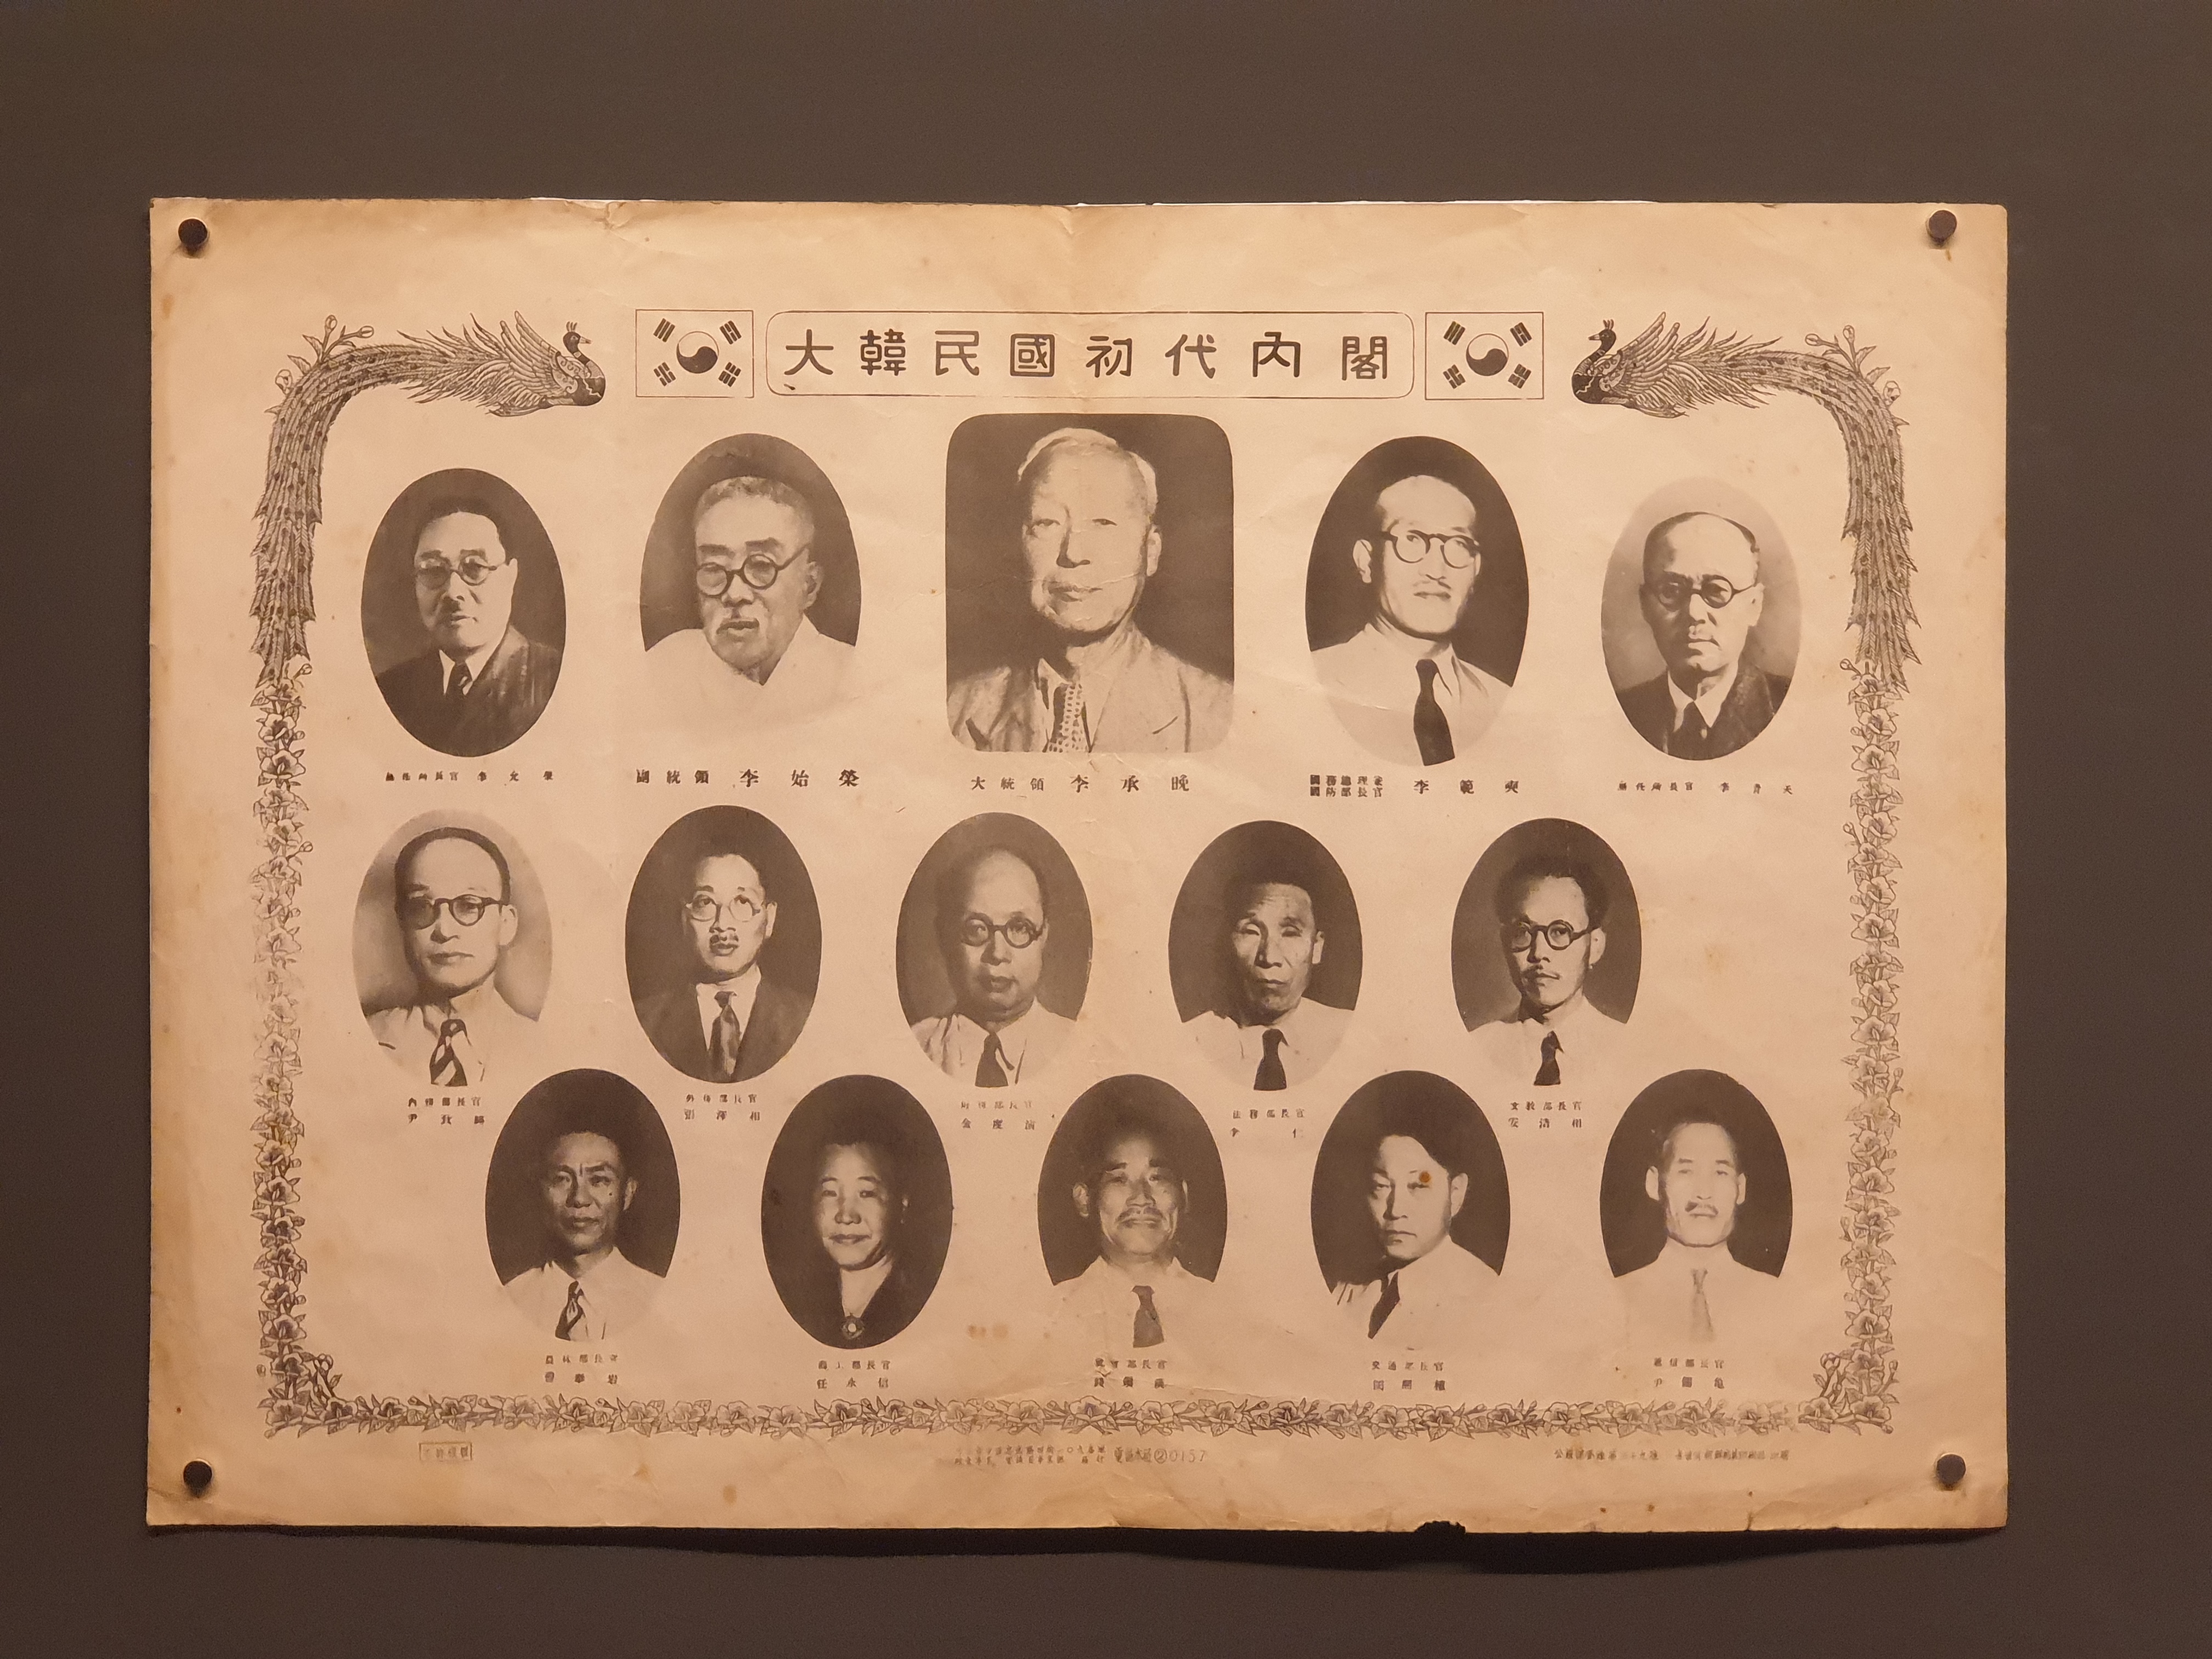 大韓民國初代內閣
無任所長官 李允榮
副統領 李始榮
大統領 李承晩
國務總理兼
國防部長官 李範奭
無任所長官 李青天
內務部長官
尹致暎
外務部長官
張澤相
財務部長官
金度演
法務部長官
李仁
文敎部長官
安浩相
農林部長官
曺奉岩
商工部長官
任永信
社會部長官
錢鎭漢
交通部長官
閔熙植
遞信部長官
尹錫龜
0157